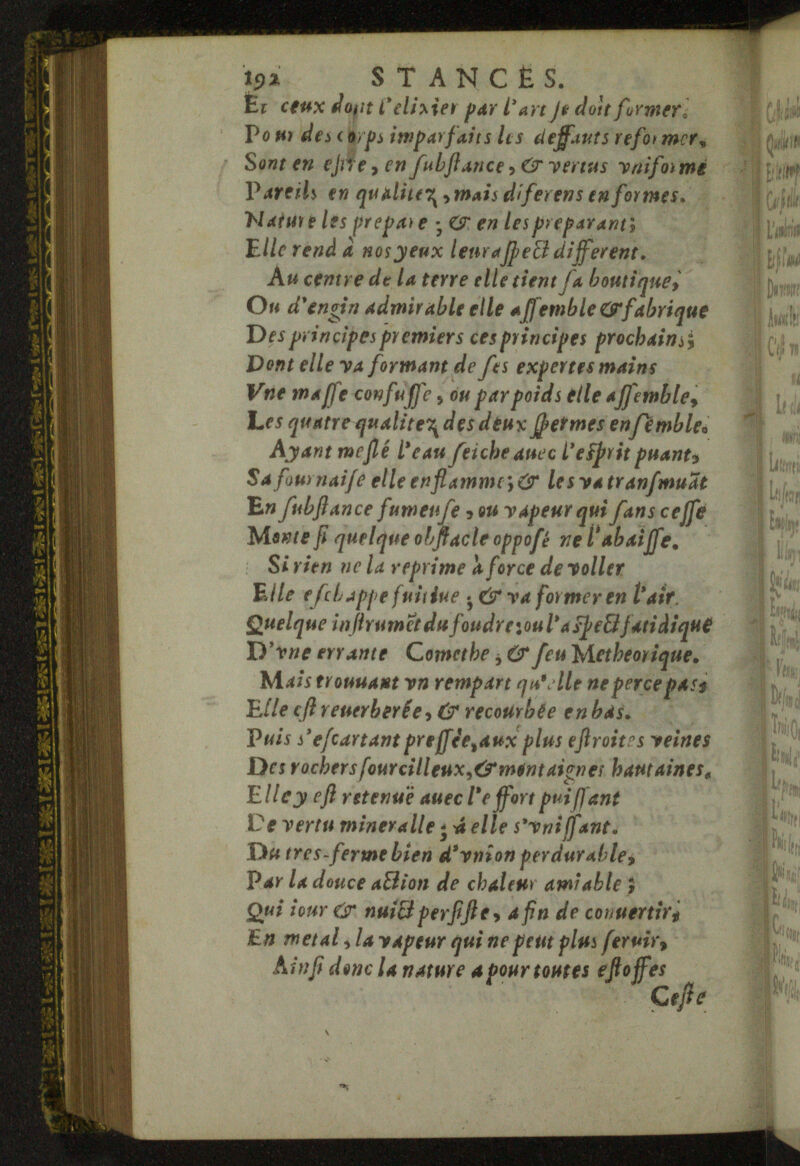 192 STANCES.
Et ceux dont l'elixier par l'art se doit former.
Pour des corps imparfaits les deffauts reformer,
Sont en estre, en substance, & vertus vniforme
Pareils en qualitez, mais diferens en formes.
Nature les prepare ; & en les preparant;
Elle rend à nos yeux leur aspect different.
Au centre de la terre elle tient sa boutique,
Ou d'engin admirable elle assemble & fabrique
Des principes premiers ces principes prochains;
Dont elle va formant de ses expertes mains
Vne masse confusse, ou par poids elle assemble,
Les quatre qualitez des deux spermes ensemble.
Ayant meslé l'eau seiche auec l'esprit puant,
Sa fournaise elle enflamme; & les va transmuãt
En substance fumeuse, ou vapeur qui sans cesse
Monte si quelque obstacle opposé ne l'abaisse.
Si rien ne la reprime à force de voller
Elle eschappe fuitiue ; & va former en l'air.
Quelque instrumẽt du foudre; ou l'aspect fatidique
D'vne errante Comethe, & feu Metheorique.
Mais trouuant vn rempart qu'elle ne perce pas;
Elle est reuerberée, & recourbée en bas.
Puis s'escartant pressée, aux plus estroites veines
Des rochers sourcilleux, & montaignes hautaines,
Elle y est retenuë auec l'effort puissant
De vertu mineralle ; à elle s'vnissant.
Du tres-ferme bien d'vnion perdurable,
Par la douce action de chaleur amiable ;
Qui iour & nuict persiste, afin de conuertir,
En metal, la vapeur qui ne peut plus seruir,
Ainsi donc la nature a pour toutes estoffes
Ceste